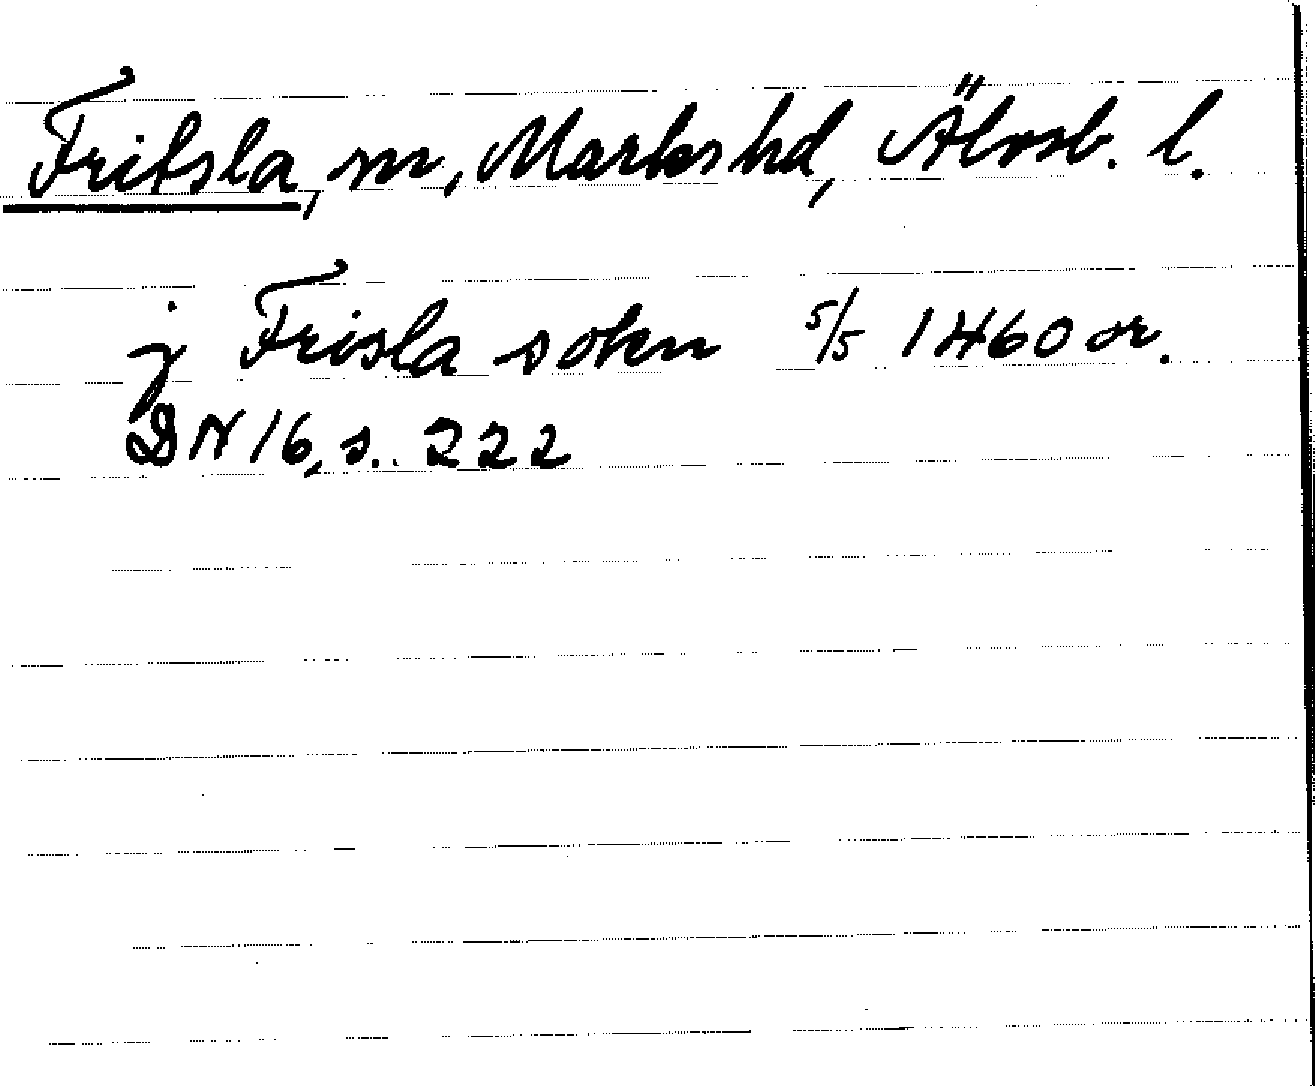 Fritsla, sn, Marks hd, Älvsb. l.
j Frisla sokn 5/5 1460 or.
DN 16, s. 222